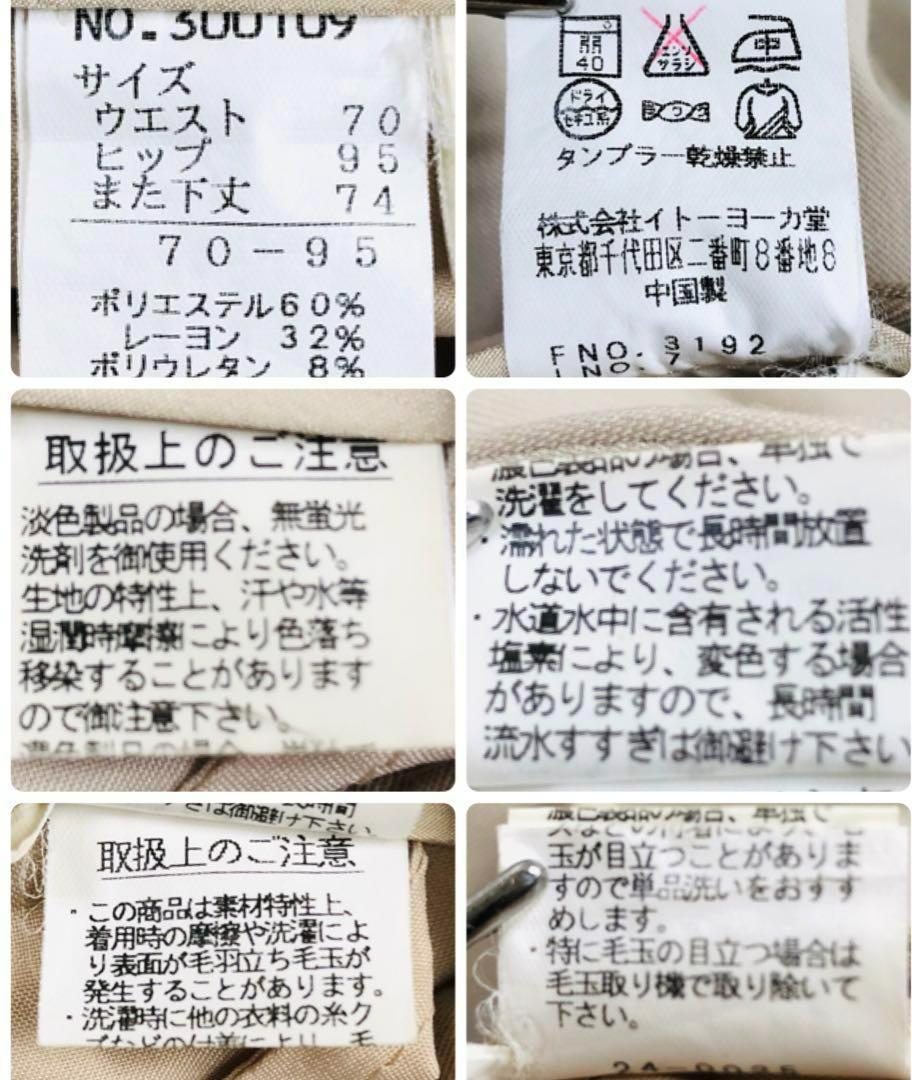 NO.300109
サイズ
ウエスト 70
ヒップ 95
また下丈 74
70-95
ポリエステル60%
レーヨン 32%
ポリウレタン 8%
40
エンソ
サラシ
中
ドライ
セキユ系
タンブラー乾燥禁止
株式会社イトーヨーカ堂
東京都千代田区二番町8番地8
中国製
FNO.3192
取扱上のご注意
淡色製品の場合、無蛍光
洗剤を御使用ください。
生地の特性上、汗や水等
湿潤時摩擦により色落ち
移染することがあります
ので御注意下さい。
濃色製品の場合、単独で
濃色製品の場合、単独で
洗濯をしてください。
・濡れた状態で長時間放置
しないでください。
・水道水中に含有される活性
塩素により、変色する場合
がありますので、長時間
流水すすぎは御避け下さい
すぎは御避け下さい
取扱上のご注意
・この商品は素材特性上、
着用時の摩擦や洗濯によ
り表面が毛羽立ち毛玉が
発生することがあります。
・洗濯時に他の衣料の糸ク
ズなどの付着により、毛
濃色製品の場合、単独で
ズなどの付着により、毛
玉が目立つことがありま
すので単品洗いをおすす
めします。
・特に毛玉の目立つ場合は
毛玉取り機で取り除いて
下さい。